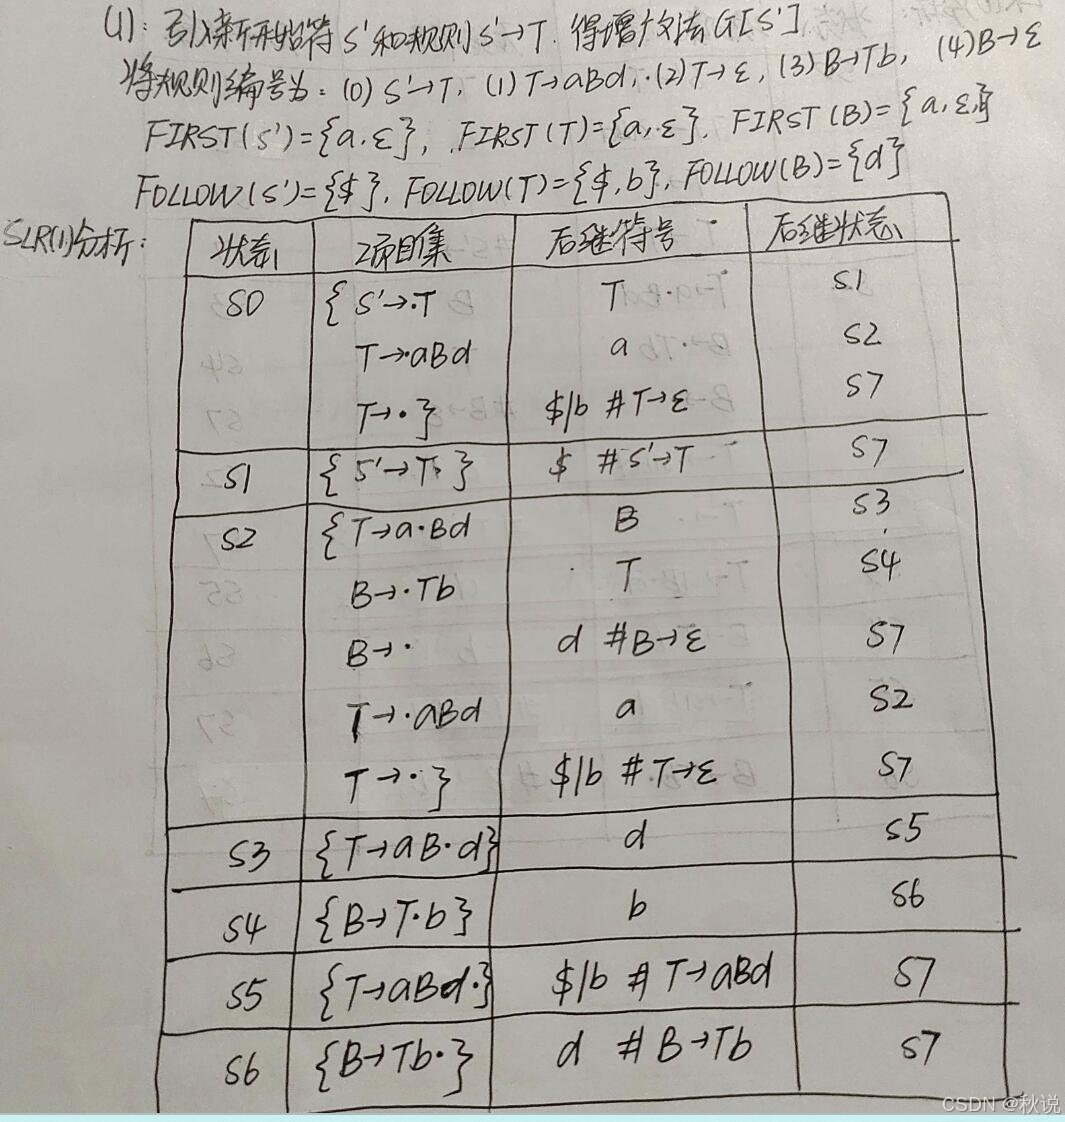 (1): 引入新开始符 S'和规则 S'→T. 得增广文法 G[S']
将规则编号为: (0) S'→T, (1) T→aBd, (2) T→ε, (3) B→Tb, (4) B→ε
FIRST(S')={a,ε}, FIRST(T)={a,ε}, FIRST(B)={a,ε,
FOLLOW(S')={$}, FOLLOW(T)={$,b}, FOLLOW(B)={d}
SLR(1)分析:
状态 项目集 后继符号 后继状态
S0 {S'→·T T S1
T→·aBd a S2
T→·} $/b #T→ε S7
S1 {S'→T·} $ #S'→T S7
S2 {T→a·Bd B S3
B→·Tb T S4
B→· d #B→ε S7
T→·aBd a S2
T→·} $/b #T→ε S7
S3 {T→aB·d} d S5
S4 {B→T·b} b S6
S5 {T→aBd·} $/b #T→aBd S7
S6 {B→Tb·} d #B→Tb S7
CSDN @秋说